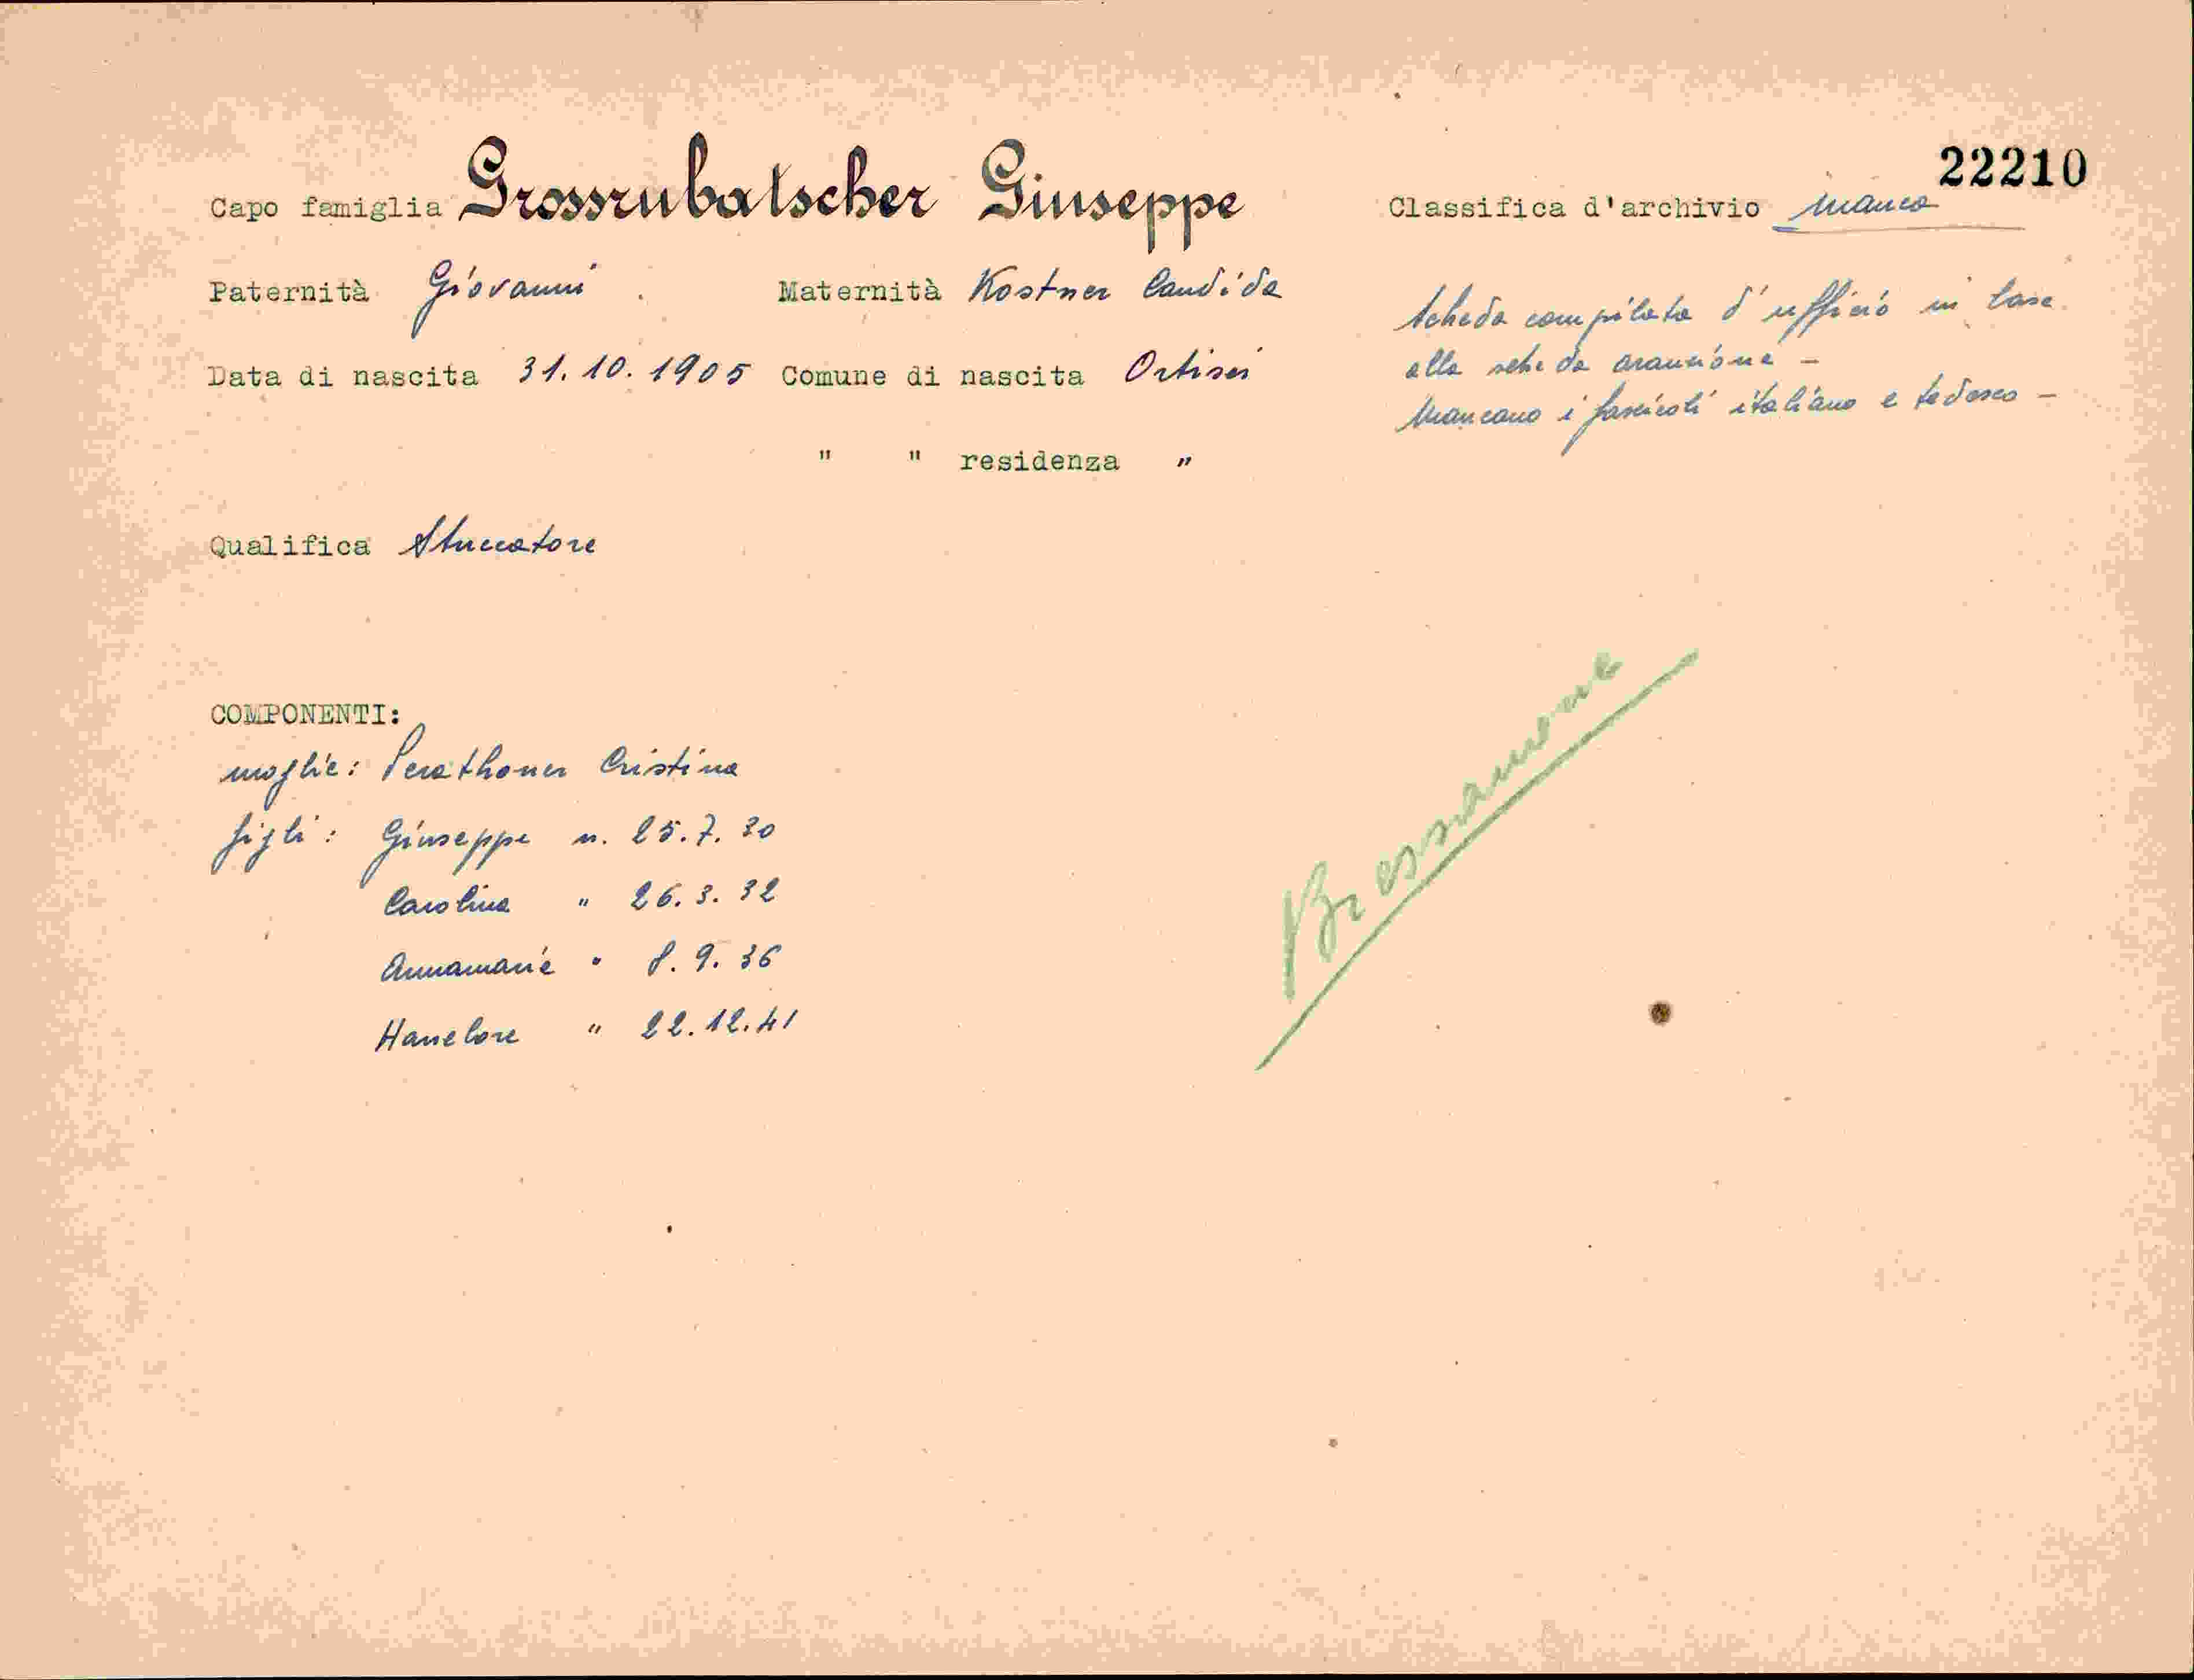 22210
Capo famiglia Grossrubatscher Giuseppe Classifica d'archivio manca
Paternità Giovanni . Maternità Kostner Candida
Scheda compilata d'ufficio in base
alla scheda arancione -
Mancano i fascicoli italiano e tedesco -
Data di nascita 31.10.1905 Comune di nascita Ortisei
" " residenza "
Qualifica Stuccatore
Bressanone
COMPONENTI:
moglie: Perathoner Cristina
figli: Giuseppe n. 25.7.30
Carolina " 26.3.32
Annamaria " 8.9.36
Hanelore " 22.12.41